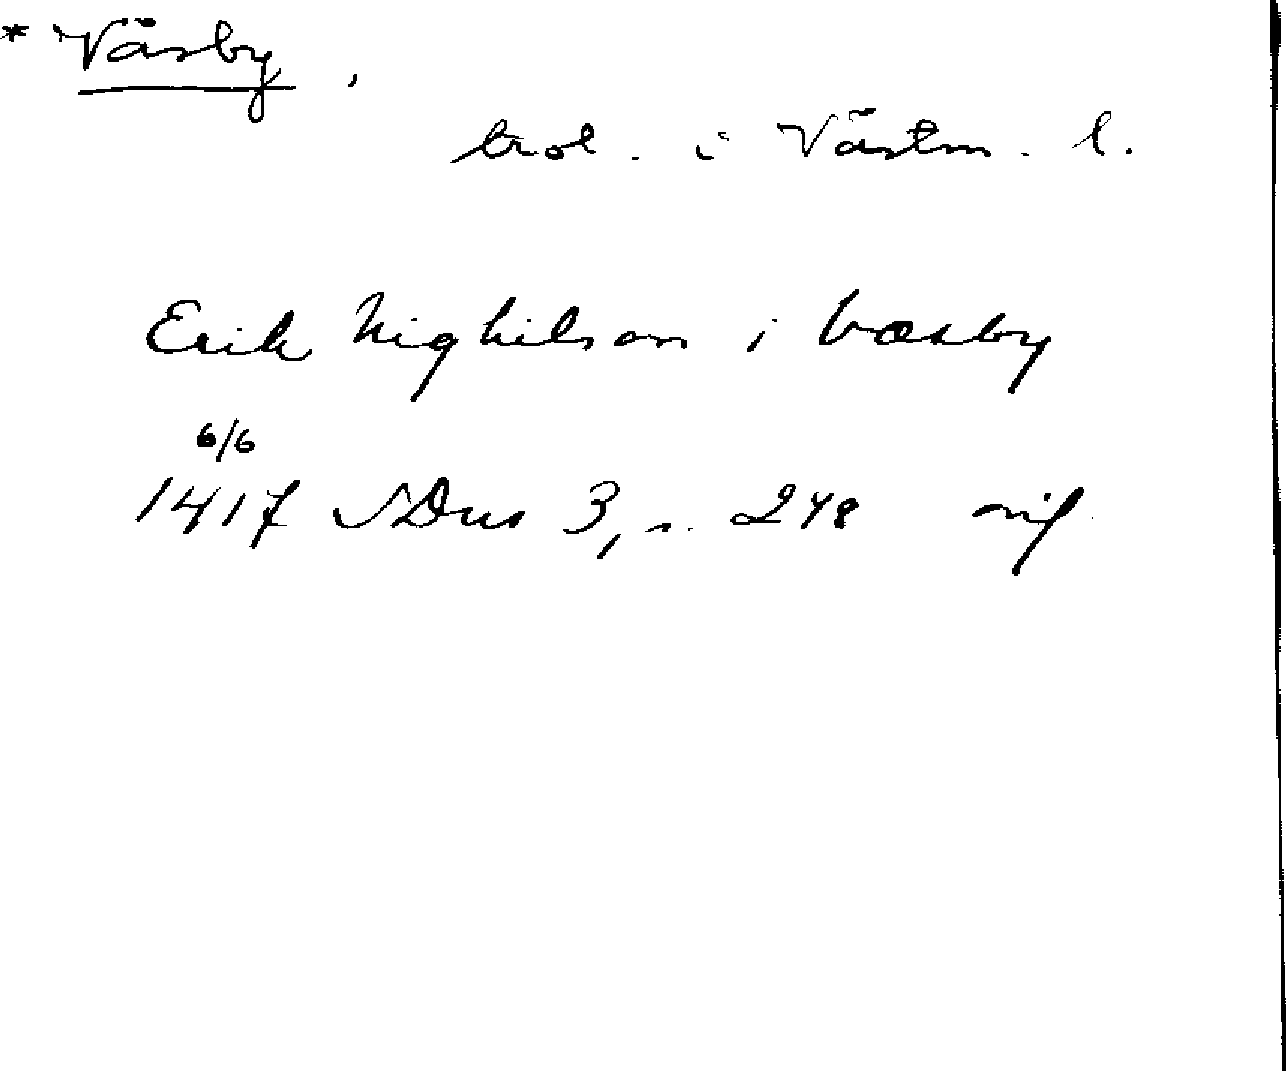 * Väsby,
trol. i Västm. l.
Erik Nighilson i Væsby
6/6
1417 SDns 3, s. 248 avf